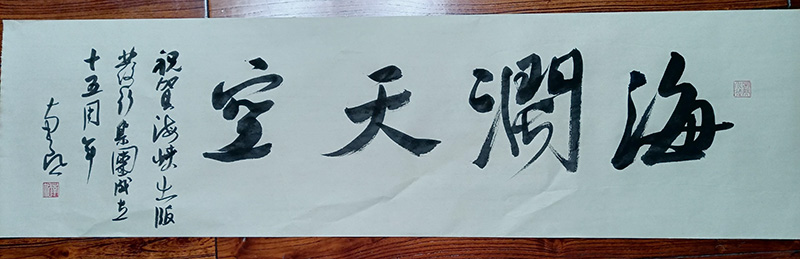 海濶天空
祝賀海峡出版
發行集團成立
十五周年